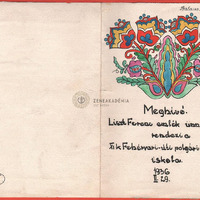 ZENEAKADÉMIA
Meghívó.
Liszt Ferenc emlék ünn
rendezi a
Szék Fehérvári-úti polgári
iskola
1936
II 29.